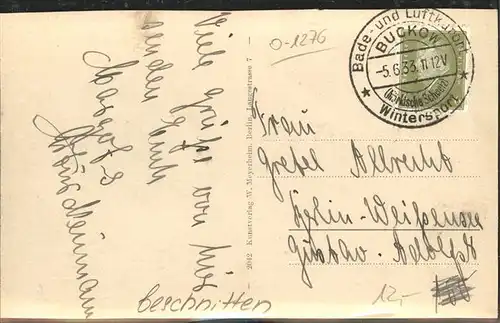 Viele Grüße von hier
senden Euch
Margot &
Neumann
O-1276
Bade- und Luftkurort
BUCKOW
-5.6.33.11-12V
(Märkische Schweiz)
★ Wintersport ★
2042 Kunstverlag W. Meyerheim, Berlin, Langestrasse 7
Frau
Gretel Albrecht
Berlin-Weißensee
Gustav-Adolfst
beschnitten
12,-